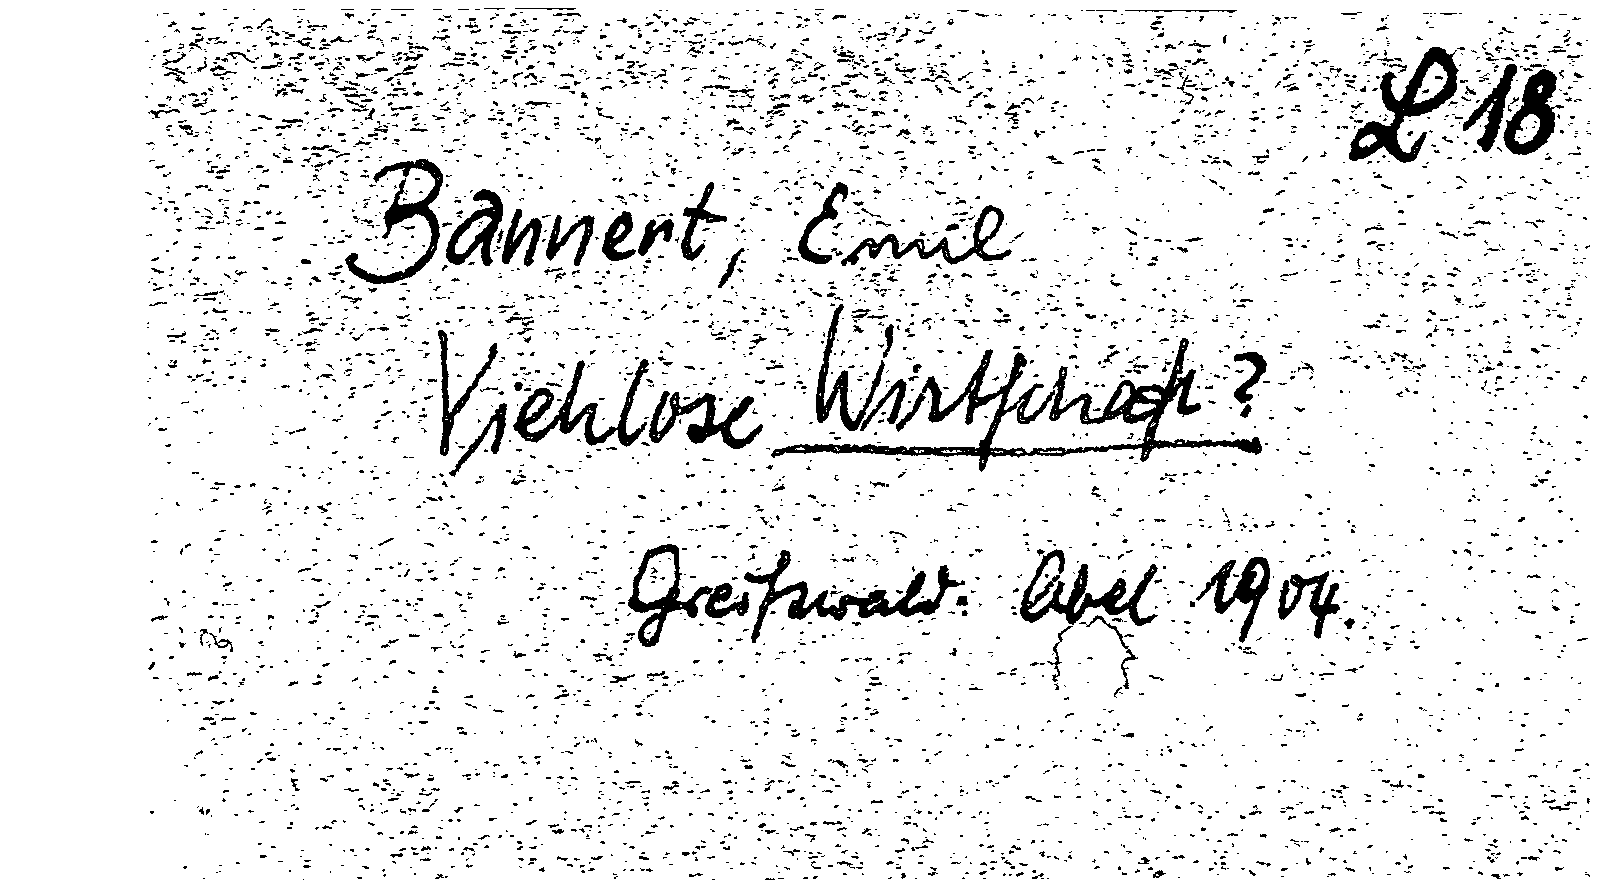 L 18
Bannert, Emil
Viehlose Wirtschaft?
Greifswald. Abel 1904.